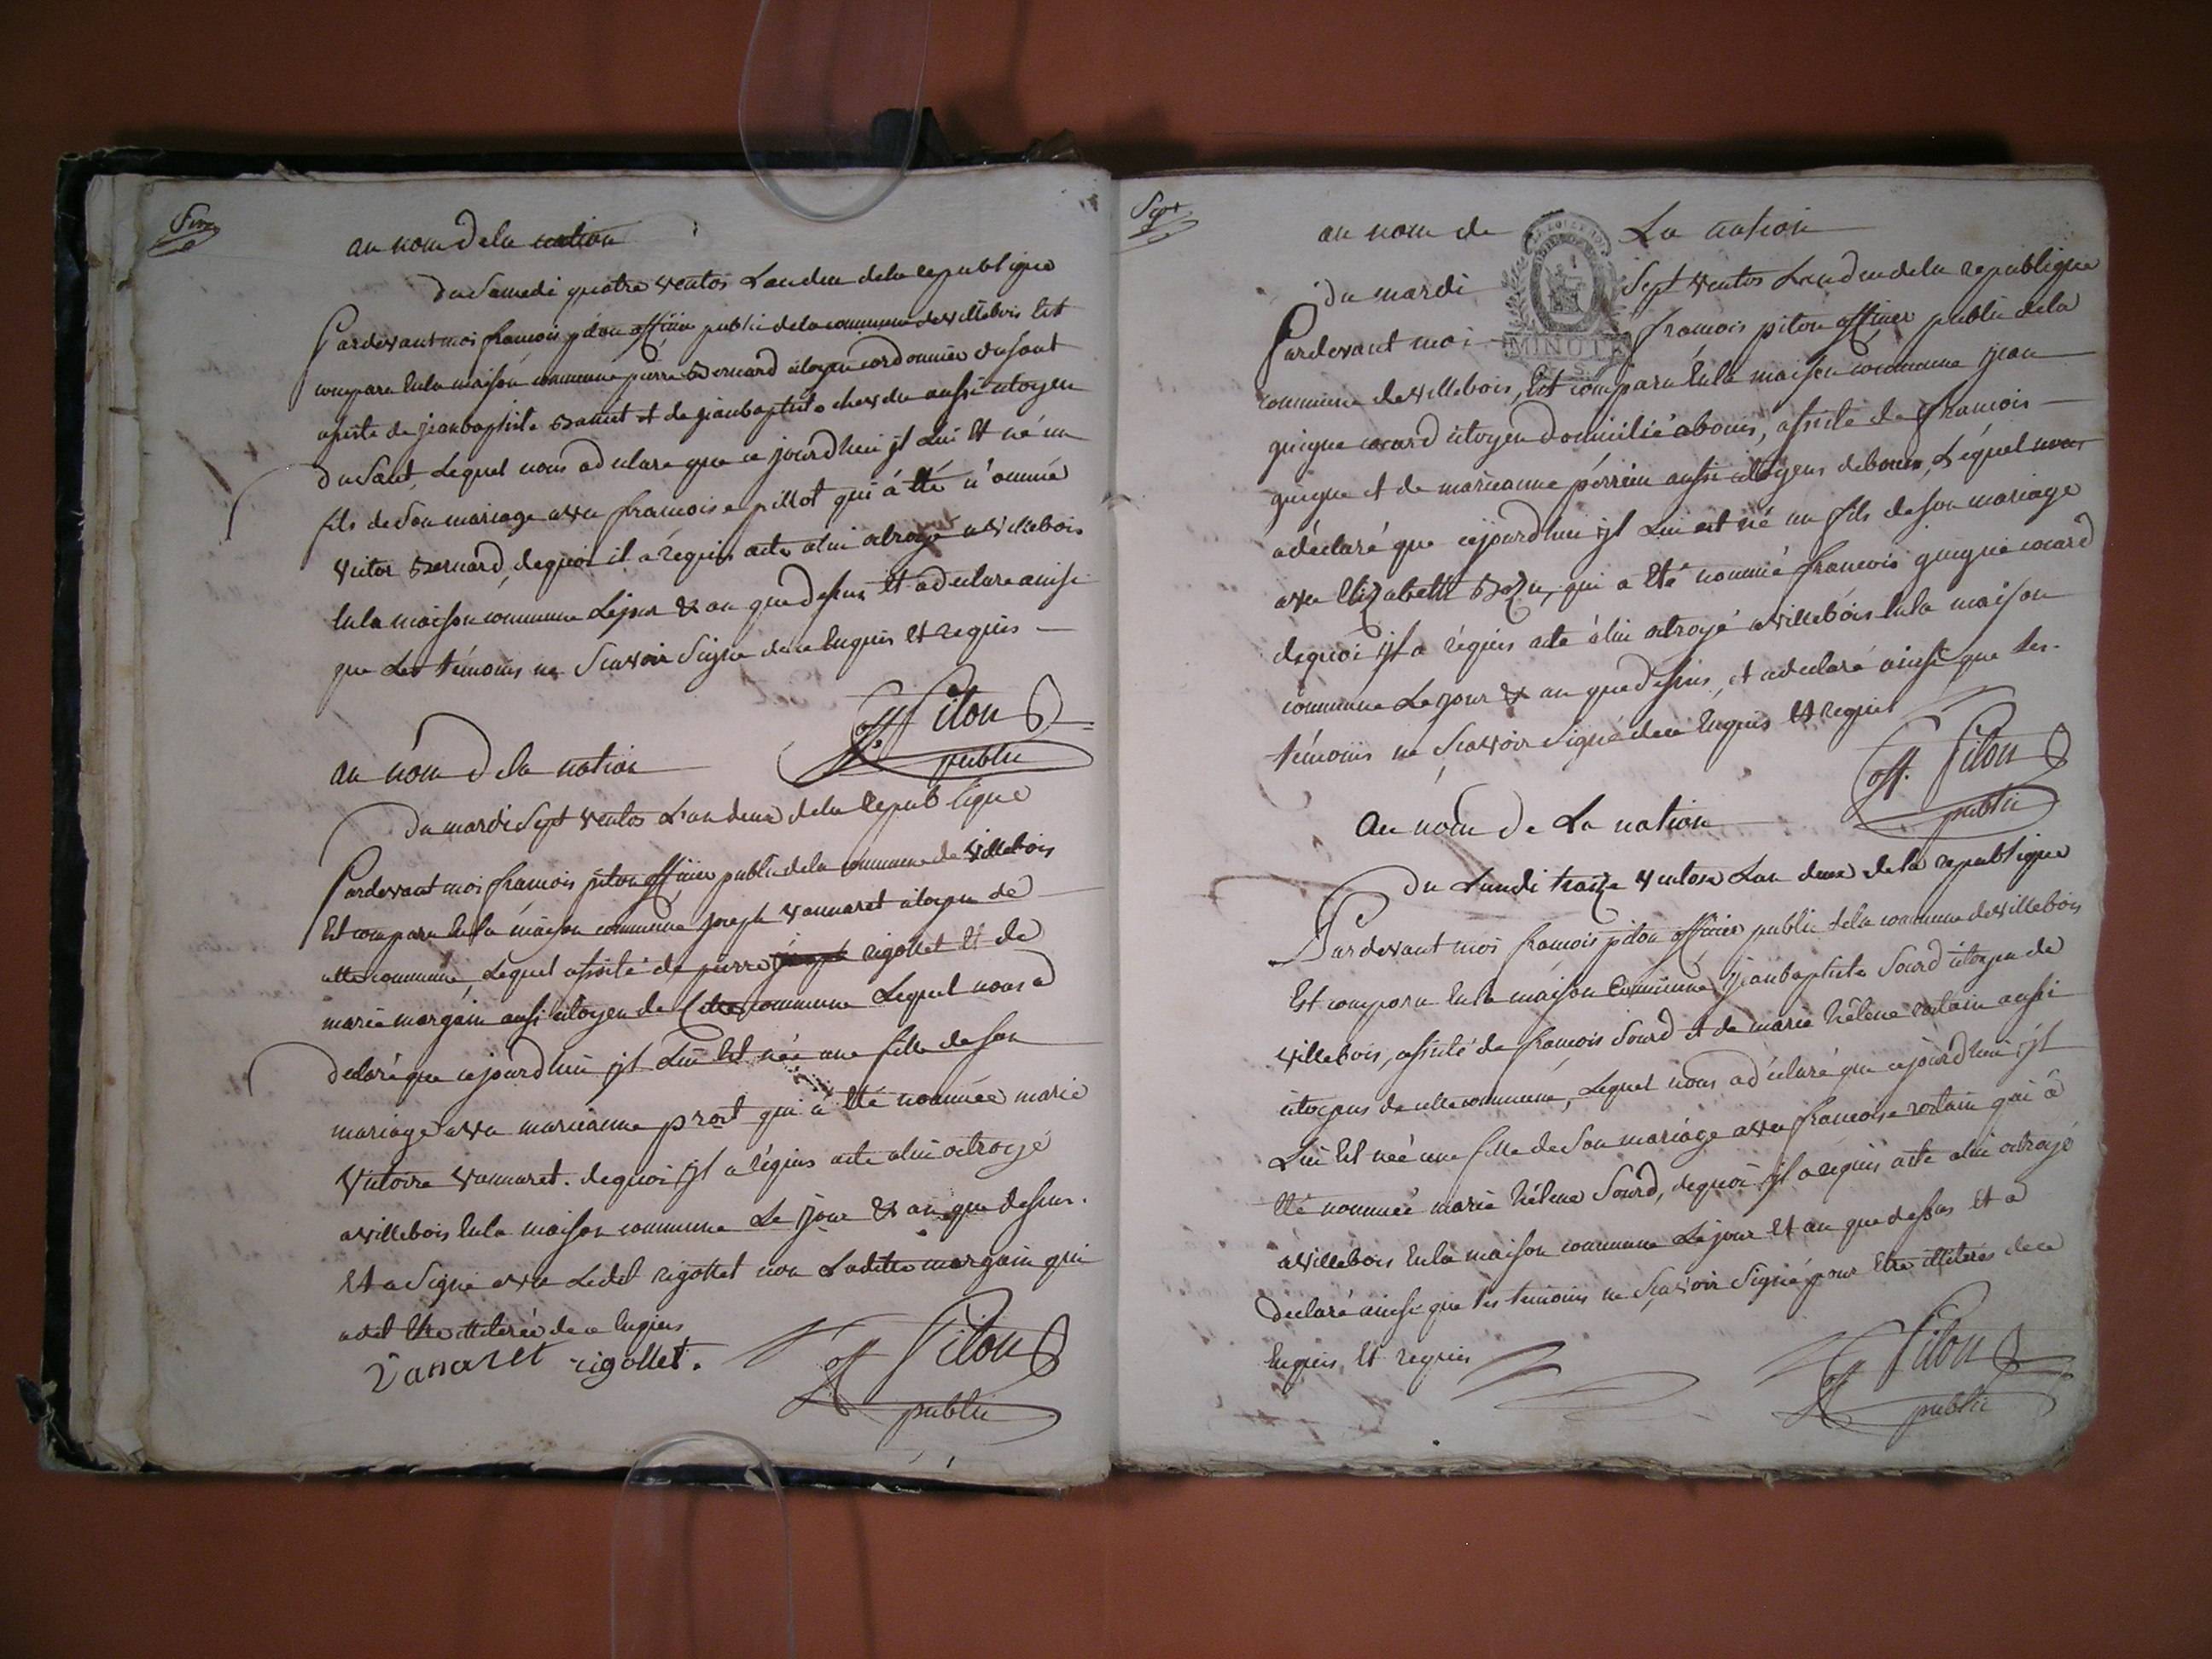 Six
au nom de la nation
du Samedi quatre ventos L'an deux de la republique
Pardevant moi françois piton officier public de la commune de villebois Est
comparu En la maison commune pierre Bernard citoyen cordonnier du saut
assisté de jean baptiste Banet et de jean baptiste chevdu aussi citoyen
du Saut, Lequel nous a declaré que ce jourd'hui jl Lui Est né un
fils de son mariage avec francoise pillot qui a Eté nommé
victor Bernard, dequoi il a requis acte a lui octroyé a villebois
En la maison commune Le jour & an que dessus et a declare ainsi
que Les témoins ne Scavoir Signe de ce Enquis Et requis
Piton
off. public
au nom de la nation
du mardi Sept ventos L'an deux de la Republique
Pardevant moi françois piton officier public de la commune de villebois
Est comparu En la maison commune joseph vannaret citoyen de
cette commune, Lequel assisté de pierre joseph rigottet Et de
marie margain aussi citoyen de Cette commune Lequel nous a
declaré que cejourd'hui jl Lui Est née une fille de son
mariage avec marieanne prost qui a Eté nommée marie
victoire vannaret. dequoi jl a requis acte a lui octroyé
a villebois En la maison commune Le jour & an que dessus.
Et a Signé avec Ledit rigottet non Laditte margain qui
a dit Etre illiterée de ce Enquis
vanaret rigollet.
Piton
off public
Sept
au nom de La nation
MINUTE
du mardi Sept ventos L'an deux de la republique
Pardevant moi françois piton officier public de la
commune de villebois, Est comparu En la maison commune jean
guigue cocard citoyen domicilié a bouis, assisté de françois
guigue et de marieanne perrin aussi citoyens de bouis, Lequel nous
a déclaré que cejourd'hui jl Lui est né un fils de son mariage
avec Elizabeth Bozu, qui a Eté nommé francois guigue cocard
dequoi jl a réquis acte à lui octroyé a villebois En la maison
commune Le jour & an que dessus, et a declaré ainsi que Les
témoins ne Scavoir Signé de ce Enquis Et requis
Piton
off. public
Au nom de La nation
Du Lundi traize ventose L'an deux de la republique
Pardevant moi françois piton officier public de la commune de villebois
Est comparu En la maison Commune jean baptiste Sourd citoyen de
villebois, assisté de françois Sourd et de marie hélène rostain aussi
citoyens de cette commune, Lequel nous a déclaré que cejourd'hui jl
Lui Est née une fille de Son mariage avec francoise rostain qui a
Eté nommée marie hélene Sourd, dequoi jl a requis acte a lui octroyé
a villebois En la maison commune Le jour Et an que dessus Et a
declaré ainsi que les temoins ne Scavoir Signé pour Etre illiteres de ce
Enquis, Et requis
Piton
off public